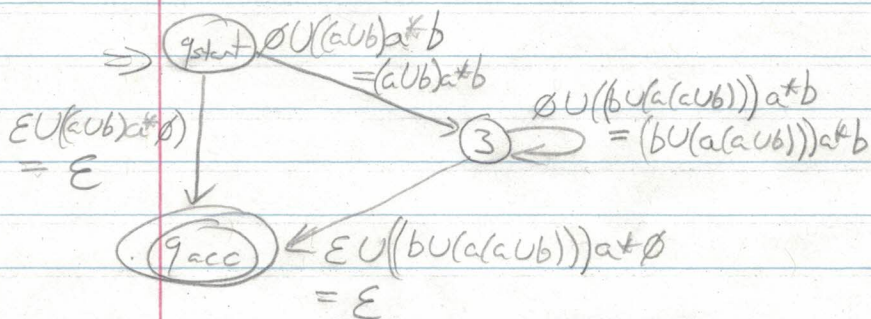 ⇒ qstart
∅∪((a∪b)a*b
=(a∪b)a*b
ε∪((a∪b)a*∅)
= ε
3
∅∪((b∪(a(a∪b)))a*b
= (b∪(a(a∪b)))a*b
qacc
ε∪((b∪(a(a∪b)))a*∅
= ε